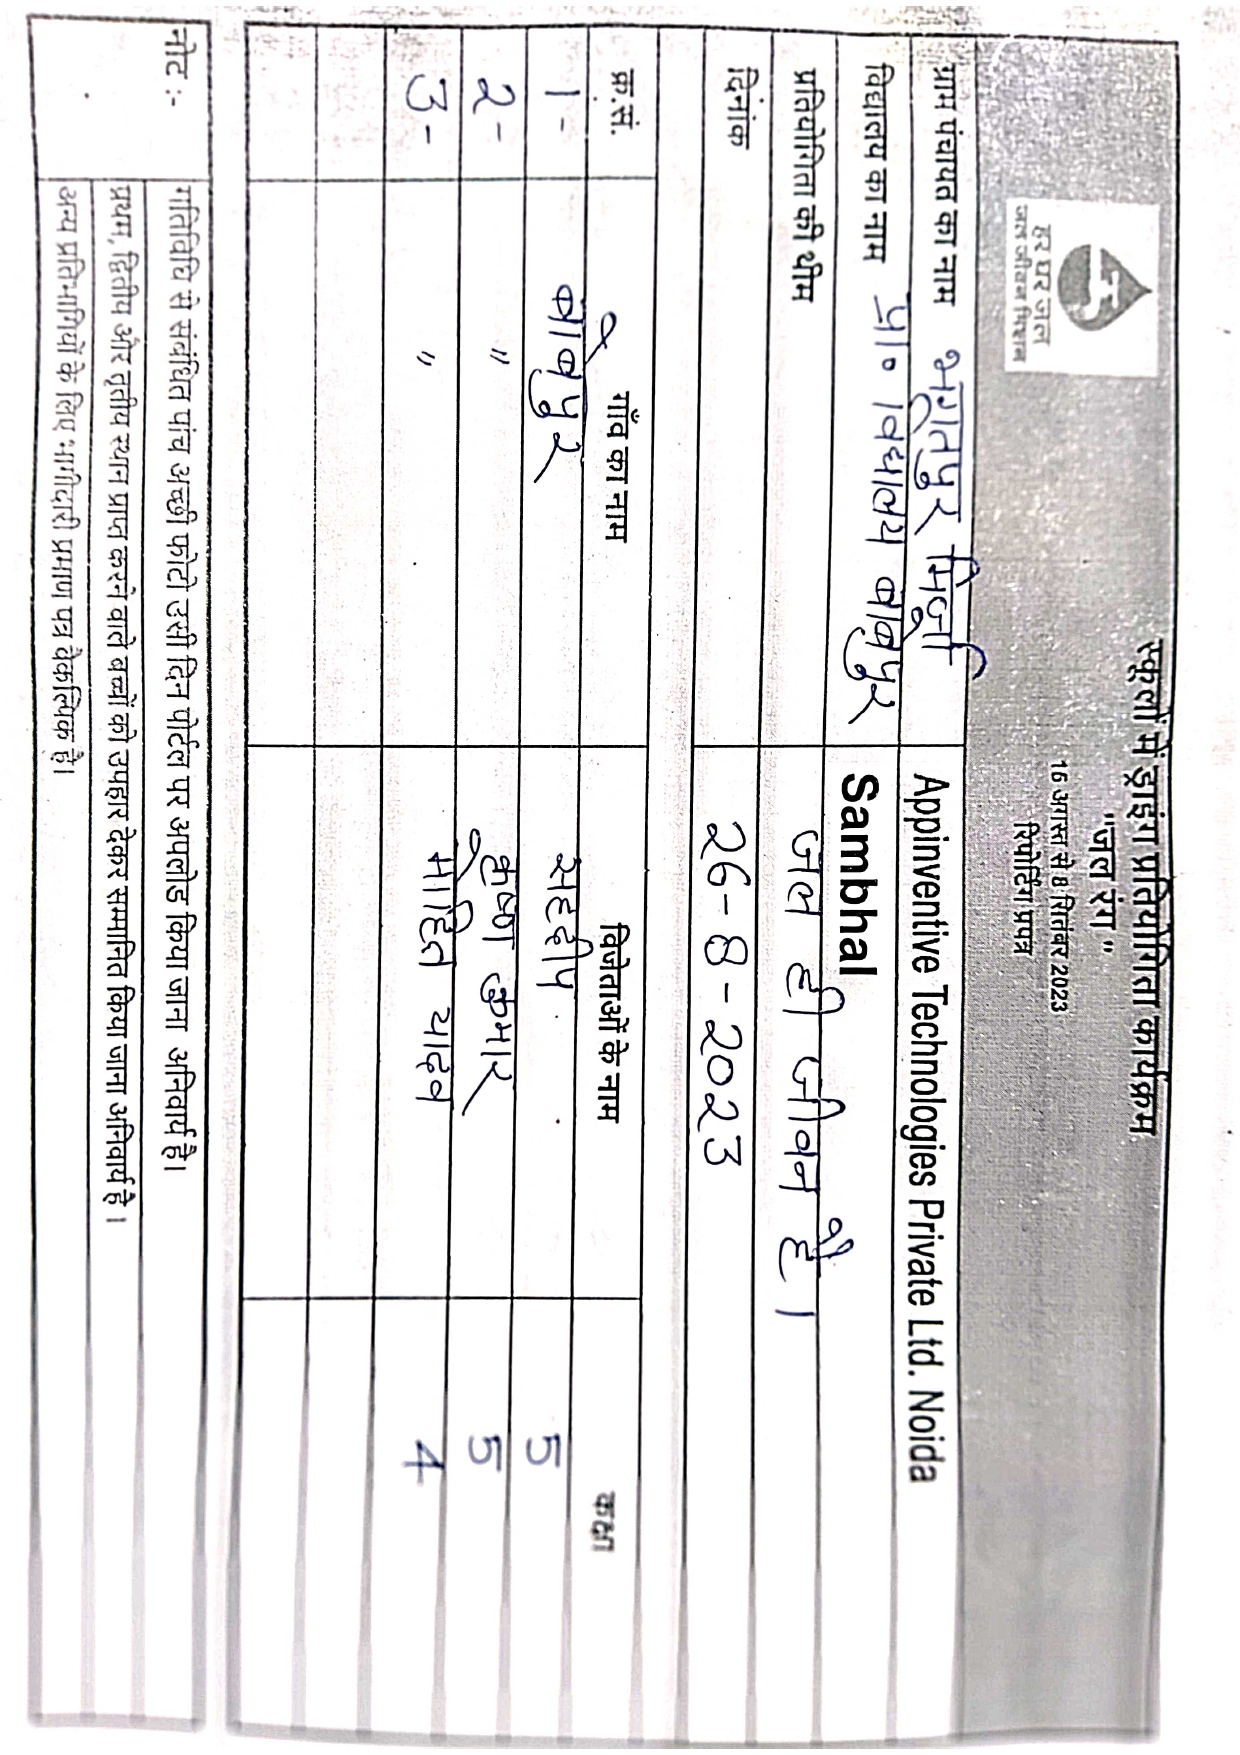 स्कूलों में ड्राइंग प्रतियोगिता कार्यक्रम
"जल रंग"
16 अगस्त से 8 सितंबर 2023
रिपोर्टिंग प्रपत्र
हर घर जल
जल जीवन मिशन
ग्राम पंचायत का नाम भगतपुर मिर्जा Appinventive Technologies Private Ltd. Noida
विद्यालय का नाम प्रा० विद्यालय Sambhal
प्रतियोगिता की थीम जल ही जीवन है।
दिनांक 26-8-2023
क्र.सं. गाँव का नाम विजेताओं के नाम कक्षा
1- 5
2- " कृष्णा कुमार 5
3- " मोहित यादव 4
नोट:-
गतिविधि से संबंधित पांच अच्छी फोटो उसी दिन पोर्टल पर अपलोड किया जाना अनिवार्य है।
प्रथम, द्वितीय और तृतीय स्थान प्राप्त करने वाले बच्चों को उपहार देकर सम्मानित किया जाना अनिवार्य है।
अन्य प्रतिभागियों के लिए भागीदारी प्रमाण पत्र वैकल्पिक है।